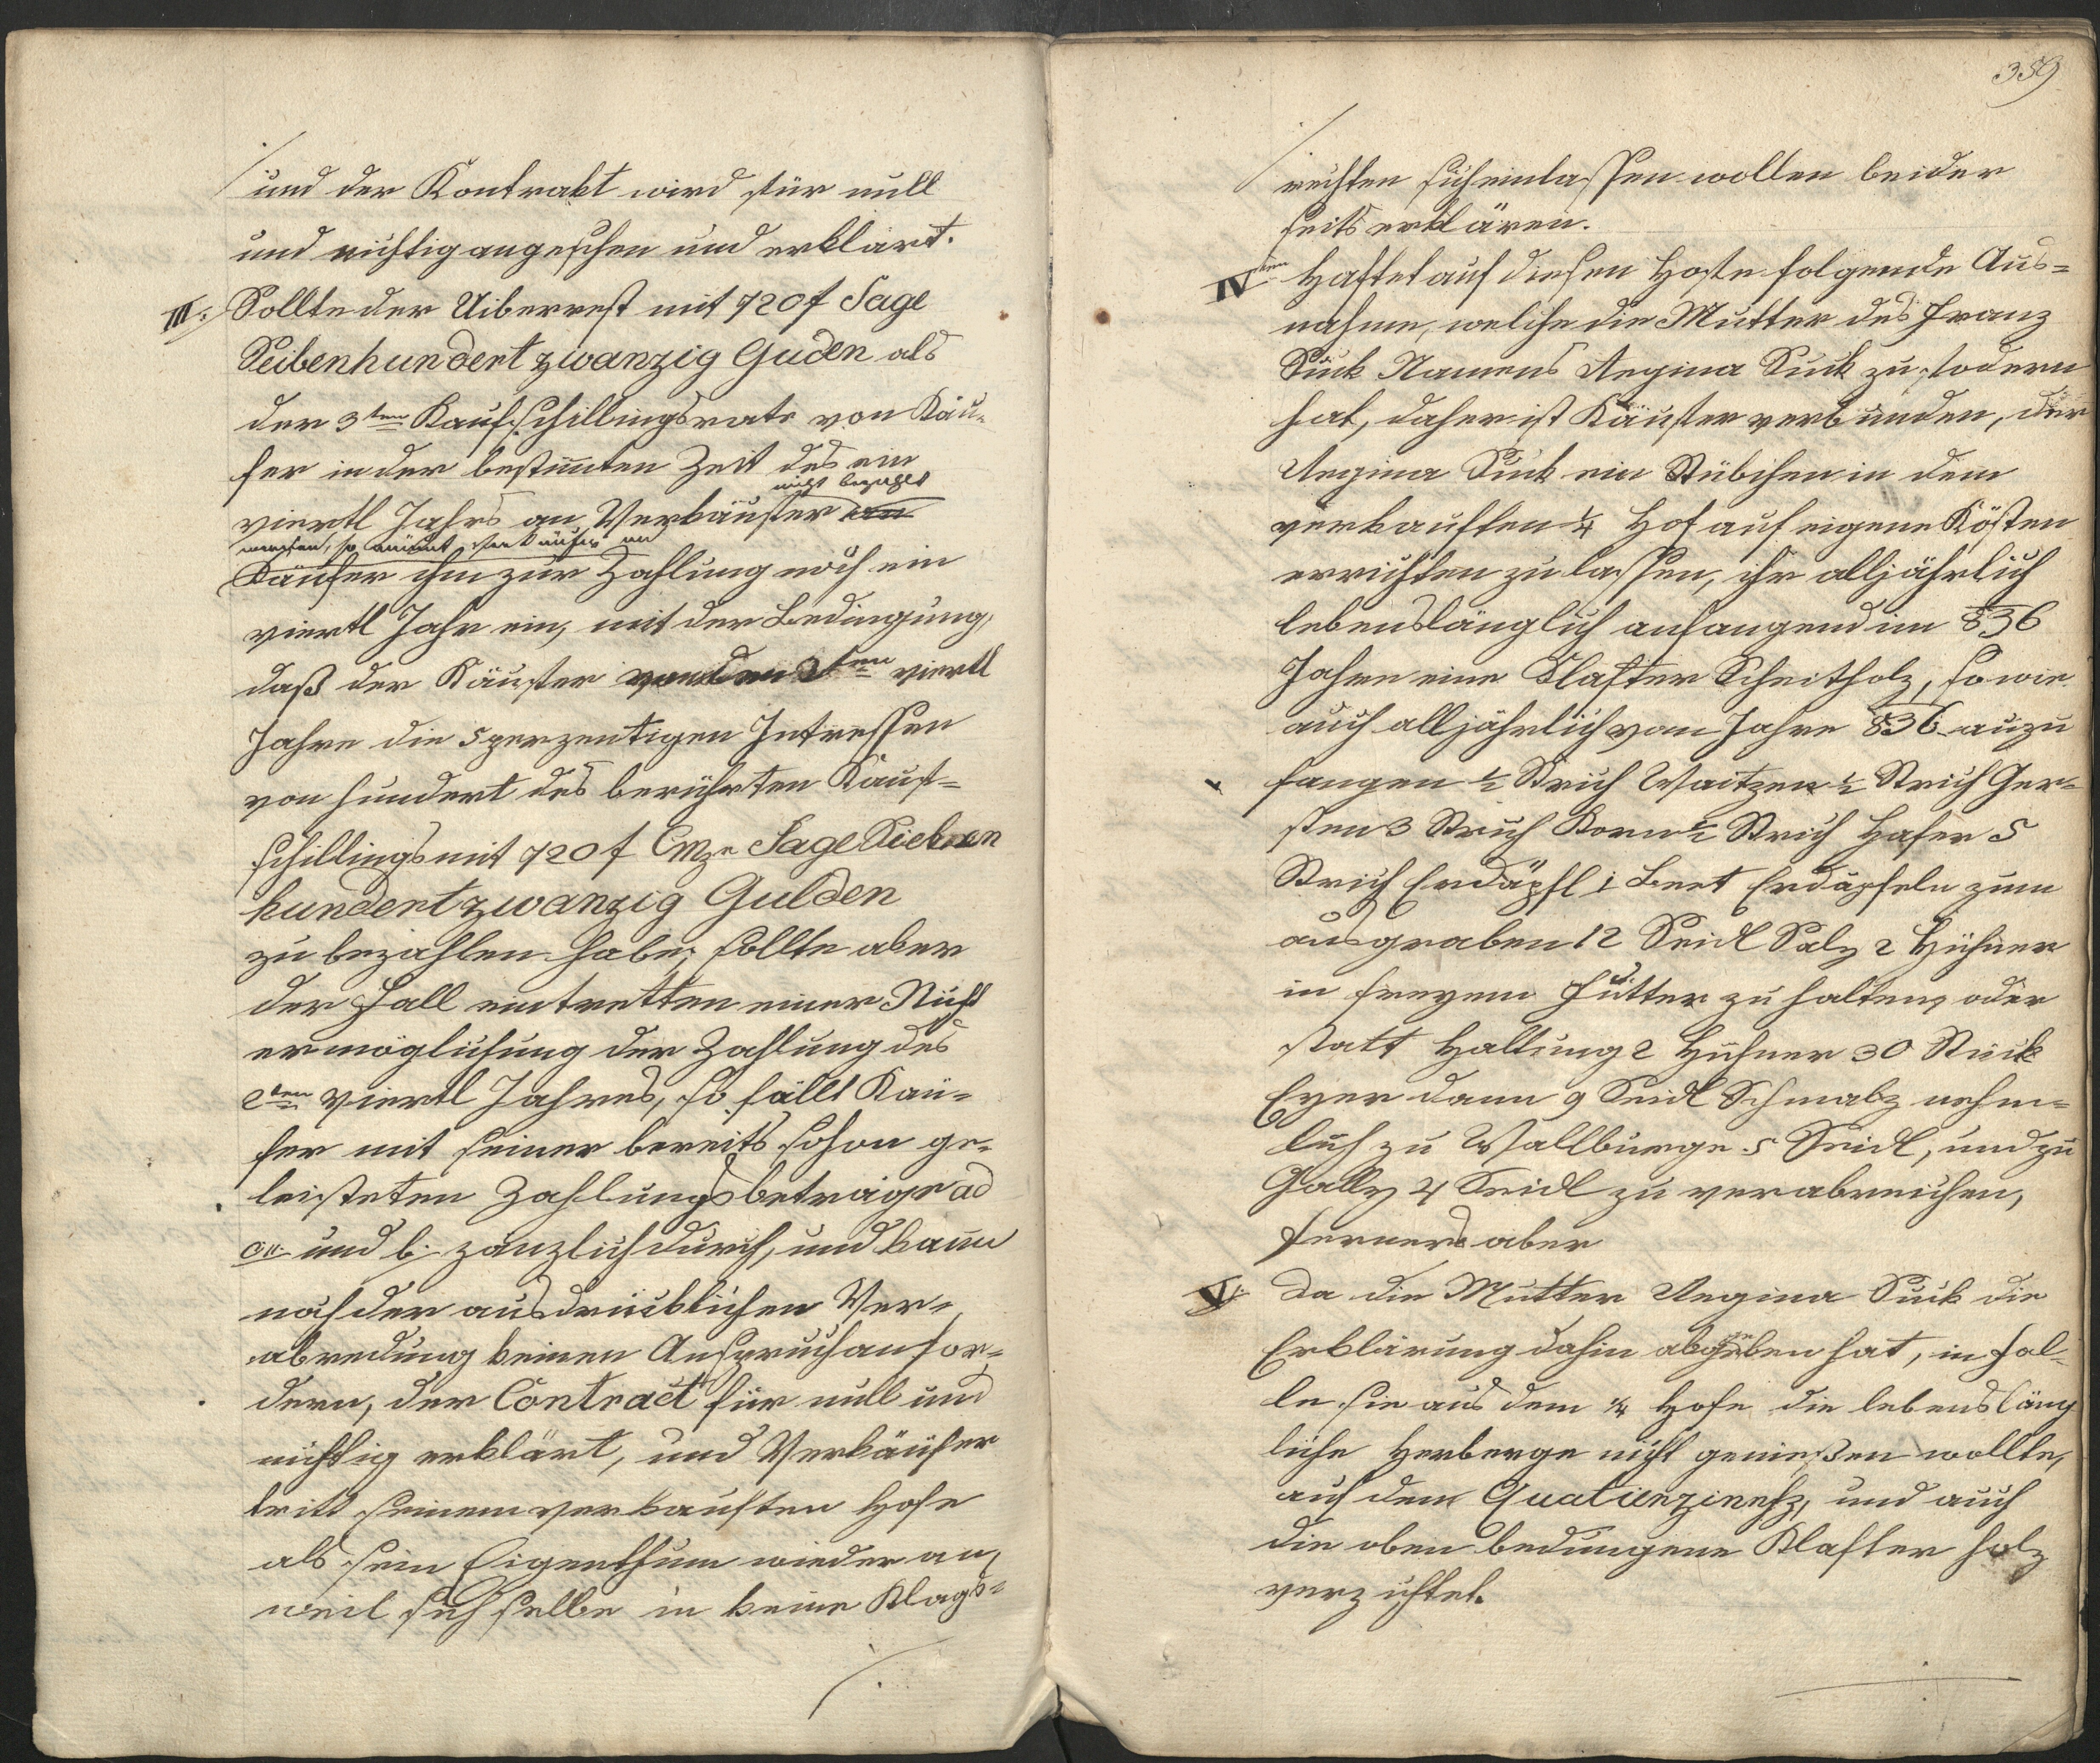 und der Kontrakt wird für null
und nichtig angesehen und erklärt.
III: Sollte der Uiberrest mit 720 f Sage
Seibenhundert zwanzig Guden als
der 3ten Kaufschillingsrate von Käu-
fer in der bestimten Zeit des ein
nicht bezahlt
viertl Jahrs an Verkäufer an
werden, so räumt Verkäufer an
Käufer ihm zur Zahlung noch ein
viertl Jahr ein, mit der Bedingung,
daß der Käufer von dem 2ten viertl
Jahre die 5 perzentigen Intressen
von hundert des berührten Kauf-
schillings mit 720 f Cmze Sage Sieben
hundert zwanzig Gulden
zu bezahlen habe; sollte aber
der Fall eintretten einer Nicht
ermöglichung der Zahlung des
2ten viertl Jahres, so fällt Käu-
fer mit seiner bereits schon ge-
leisteten Zahlungsbeträge ad
a. und b. zänzlich durch, und kann
nach der ausdrücklichen Ver-
abredung keinen Anspruch anfor-
dern, der Contract für null und
nichtig erklärt, und Verkäufer
tritt seinem verkauften Hofe
als sein Eigenthum wieder an,
weil sich selbe in keine Klags-
359
rechten sich einlassen wollen beider
seits erklären.
IVten Haftet auf diesen Hofe folgende Aus-
nahme, welche die Mutter des Franz
Suck Namens Regina Suck zu fodern
hat, daher ist Käufer verbunden, der
Regina Suck ein Stübchen in dem
verkauften 1/4 Hof auf eigene Kösten
errichten zu lassen, ihr alljährlich
lebenslänglich anfangend im 836
Jahre eine Klafter Scheitholz, so wie
auch alljährlich vom Jahre 836 anzu
fangen 1/2 Strich Waitzen 1/2 Strich Ger-
sten 3 Strich Korn 1/2 Strich Hafer 5
Strich Erdäpfl 1 Beet Erdäpfeln zum
ausgraben 12 Seidl Salz 2 Hühner
in freyem Futter zu halten, oder
statt Haltung 2 Hühner 30 Stück
Eyer dann 9 Seidl Schmalz nehm-
lich zu Wallburge 5 Seidl, und zu
Gally 4 Seidl zu verabreichen,
ferners aber
V. Da die Mutter Regina Suck die
Erklärung dahin abgeben hat, in Fal-
le sie aus dem 1/4 Hofe die lebensläng
liche Herberge nicht genießen wollte,
auf dem Quatierzinehz, und auch
die oben bedungene Klafter Holz
verzichtet.